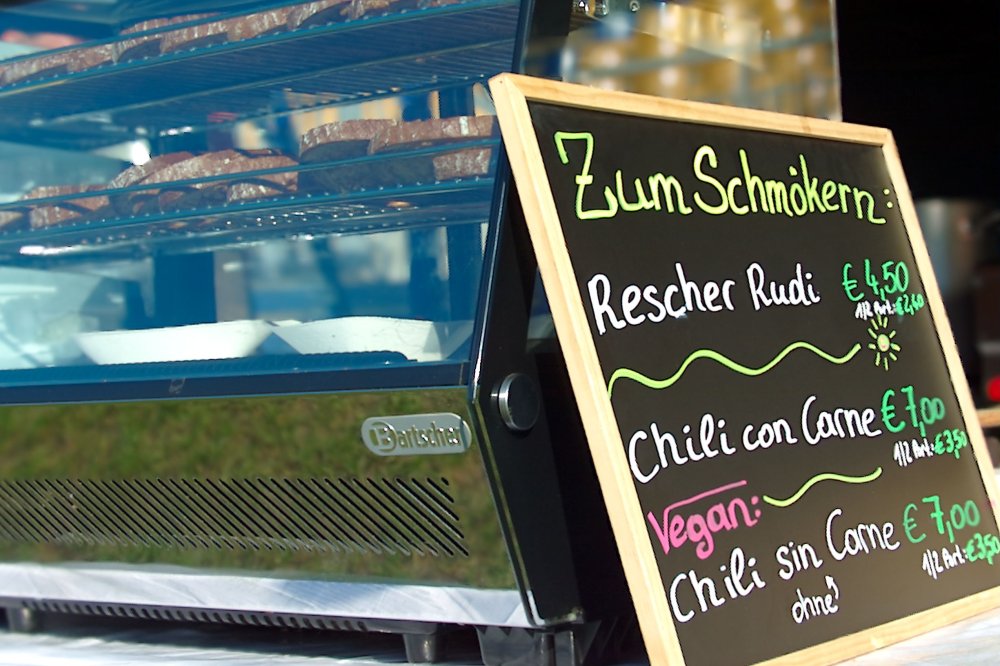 Bartscher
Zum Schmökern:
Rescher Rudi € 4,50
1/2 Port.: €2,40
Chili con Carne € 7,00
1/2 Port.: €3,50
Vegan:
Chili sin Carne € 7,00
1/2 Port.: €3,50
ohne